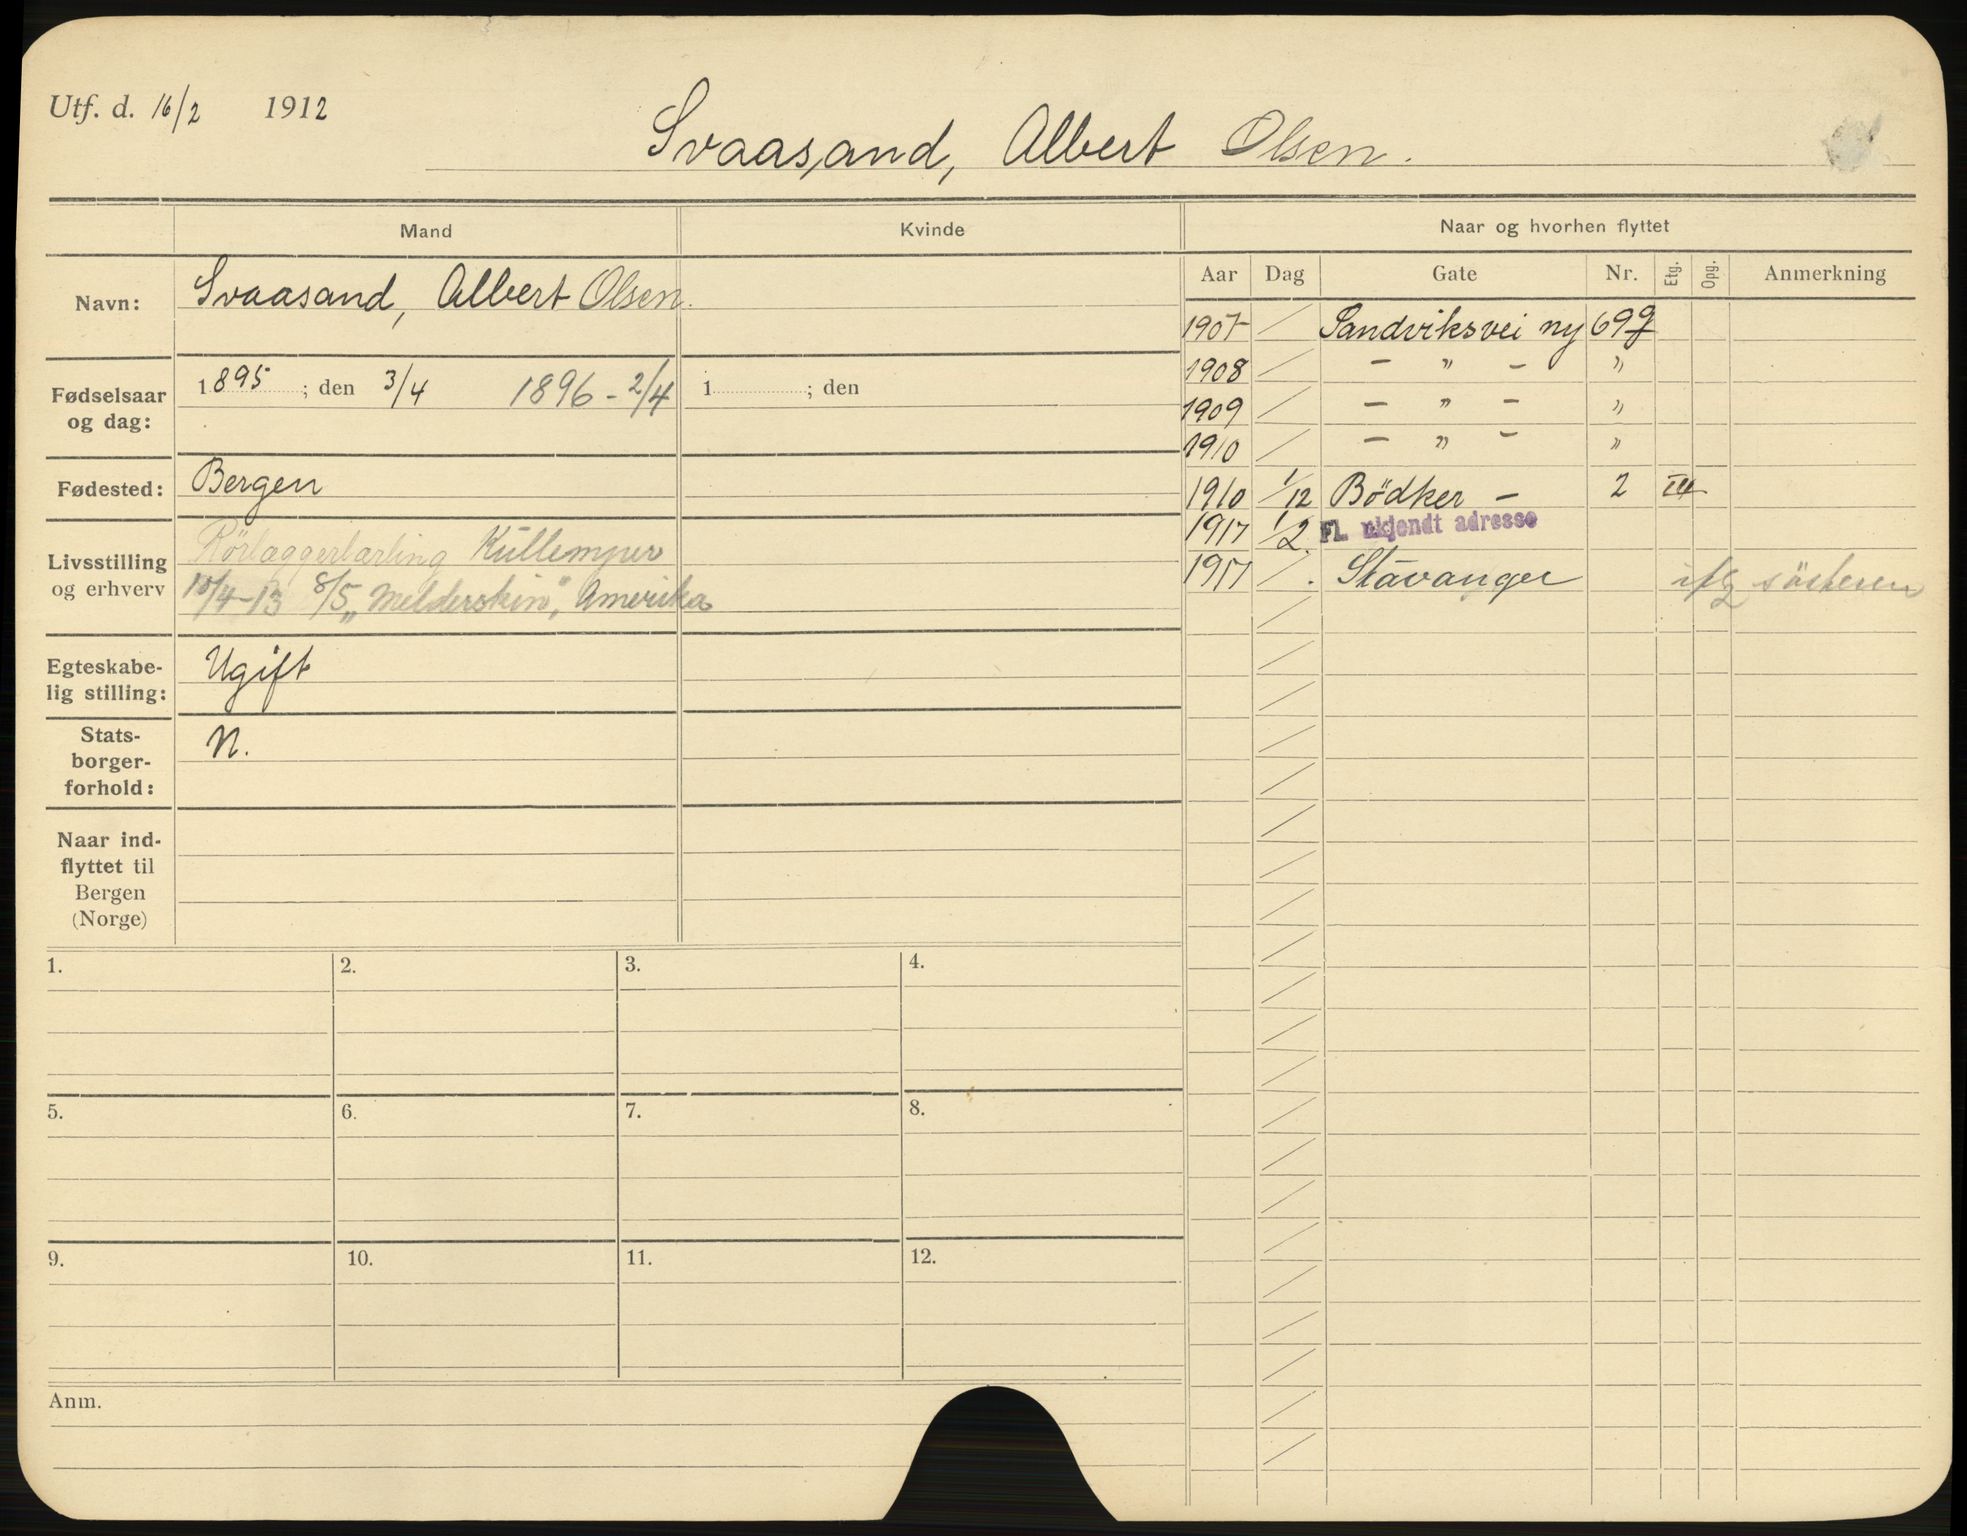 Utf. d. 16/2 1912
Svaasand, Albert Olsen.
Mand
Kvinde
Naar og hvorhen flyttet
Navn:
Svaasand, Albert Olsen.
Fødselsaar
og dag:
1895 ; den 3/4 1896 - 2/4
1 ; den
Fødested:
Bergen
Livsstilling
og erhverv
Rörlæggerlærling Kullemper
10/4-13 8/5 „Melderskin", Amerika
Egteskabe-
lig stilling:
Ugift
Stats-
borger-
forhold:
N.
Naar ind-
flyttet til
Bergen
(Norge)
Aar Dag Gate Nr. Etg. Opg. Anmerkning
1907 / Sandviksvei ny 69g
1908 / - „ - „
1909 / - „ - „
1910 / - „ - „
1910 1/12 Bödker - 2 III
1917 1/2 Fl. ukjendt adresse
1917 / Stavanger ifg söstere
1. 2. 3. 4.
5. 6. 7. 8.
9. 10. 11. 12.
Anm.